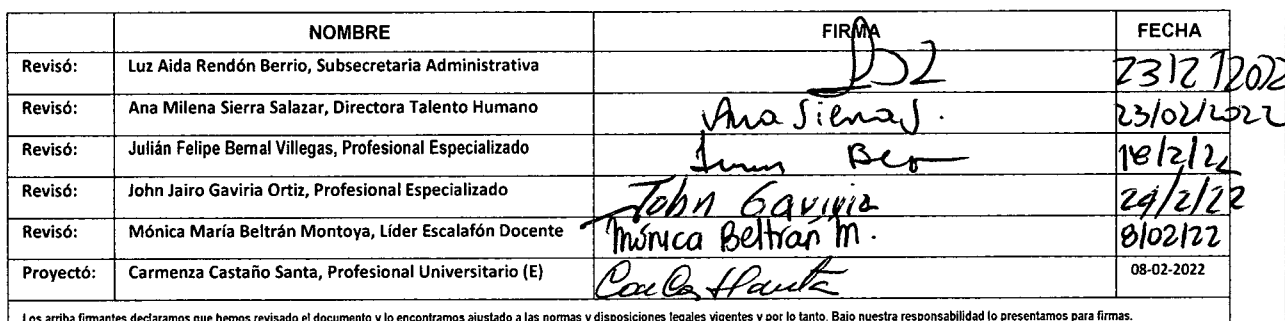 NOMBRE FIRMA FECHA
Revisó: Luz Aida Rendón Berrio, Subsecretaria Administrativa 23/2/2022
Revisó: Ana Milena Sierra Salazar, Directora Talento Humano Ana Sierra S. 23/02/2022
Revisó: Julián Felipe Bernal Villegas, Profesional Especializado 18/2/22
Revisó: John Jairo Gaviria Ortiz, Profesional Especializado John Gaviria 24/2/22
Revisó: Mónica María Beltrán Montoya, Líder Escalafón Docente Mónica Beltrán M. 8/02/22
Proyectó: Carmenza Castaño Santa, Profesional Universitario (E) 08-02-2022
Los arriba firmantes declaramos que hemos revisado el documento y lo encontramos ajustado a las normas y disposiciones legales vigentes y por lo tanto. Bajo nuestra responsabilidad lo presentamos para firmas.